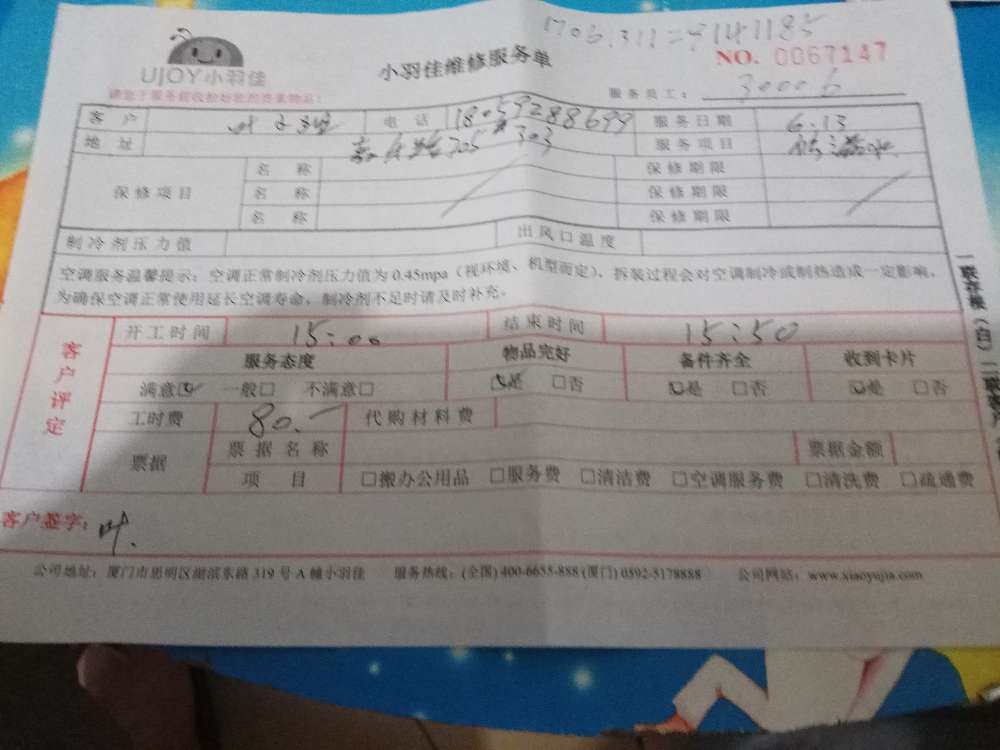 UJOY小羽佳
小羽佳维修服务单
NO. 0067147
服务员工: 30006
客户 电话 服务日期 6.13
地址 705 303 服务项目
保修项目 名称 保修期限
名称 保修期限
名称 保修期限
制冷剂压力值 出风口温度
空调服务温馨提示:空调正常制冷剂压力值为0.45mpa(视环境、机型而定),拆装过程会对空调制冷或制热造成一定影响,
为确保空调正常使用延长空调寿命,制冷剂不足时请及时补充。
客户评定
开工时间 15:00 结束时间 15:50
服务态度 物品完好 备件齐全 收到卡片
满意☑ 一般□ 不满意□ ☑是 □否 ☑是 □否 ☑是 □否
工时费 80.- 代购材料费
票据 票据名称 票据金额
项目 □搬办公用品 □服务费 □清洁费 □空调服务费 □清洗费 □疏通费
客户签字: 叶.
公司地址:厦门市思明区湖滨东路319号A幢小羽佳 服务热线:(全国)400-6655-888 (厦门)0592-5178888 公司网站:www.xiaoyujia.com